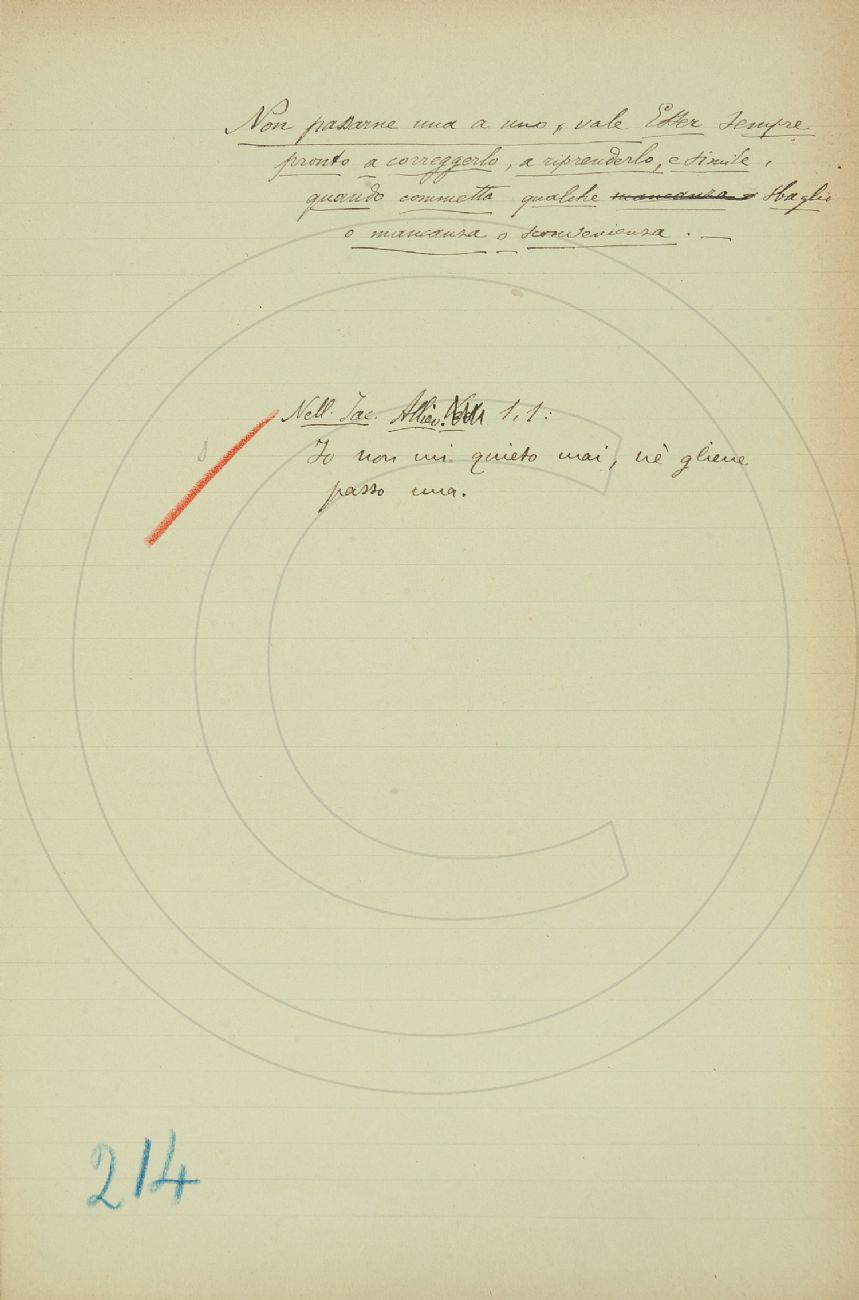 Non passarne una a uno, vale Esser sempre
pronto a correggerlo, a riprenderlo, e simile,
quando commetta qualche mancanza o sbaglio
o mancanza o sconvenienza. —
Nell. Jac. Alliev. Ved. 1, 1:
Io non mi quieto mai, nè gliene
passo una.
214